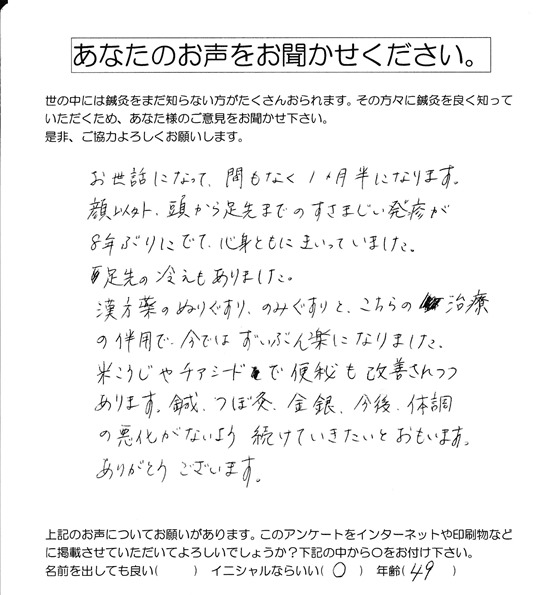 あなたのお声をお聞かせください。
世の中には鍼灸をまだ知らない方がたくさんおられます。その方々に鍼灸を良く知って
いただくため、あなた様のご意見をお聞かせ下さい。
是非、ご協力よろしくお願いします。
お世話になって、間もなく1ヶ月半になります。
顔以外、頭から足先までのすさまじい発疹が
8年ぶりにでて、心身ともにまいっていました。
足先の冷えもありました。
漢方薬のぬりぐすり、のみぐすりと、こちらの治療
の併用で、今ではずいぶん楽になりました。
米こうじやチアシードで便秘も改善されつつ
あります。鍼、つぼ灸、金銀、今後、体調
の悪化がないよう続けていきたいとおもいます。
ありがとうございます。
上記のお声についてお願いがあります。このアンケートをインターネットや印刷物など
に掲載させていただいてよろしいでしょうか？下記の中から○をお付け下さい。
名前を出しても良い(　　) イニシャルならいい( ○ ) 年齢( 49 )